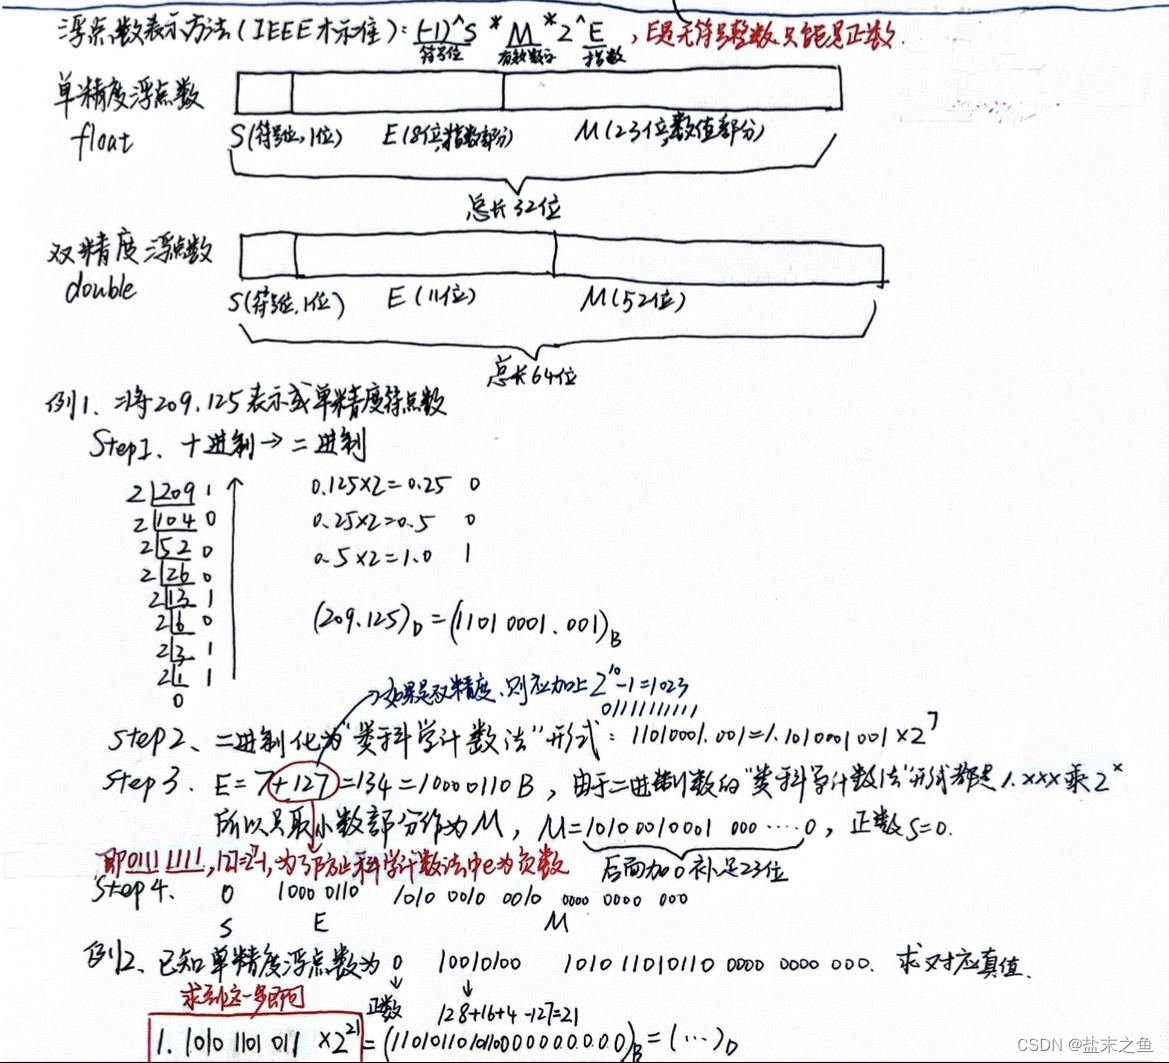 浮点数表示方法(IEEE标准): (-1)^S * M * 2^E, E是无符号整数,只能是正数.
符号位 有效数字 指数
单精度浮点数
float
S(符号位,1位) E(8位,指数部分) M(23位,数值部分)
总长32位
双精度浮点数
double
S(符号位,1位) E(11位) M(52位)
总长64位
例1、将209.125表示成单精度浮点数
Step1、十进制→二进制
2|209 1 0.125×2=0.25 0
2|104 0 0.25×2=0.5 0
2|52 0 0.5×2=1.0 1
2|26 0
2|13 1
2|6 0 (209.125)D=(11010001.001)B
2|3 1
2|1 1
0
→如果是双精度,则应加上2^10-1=1023
01111111111
Step2、二进制化为“类科学计数法”形式: 11010001.001=1.1010001001×2^7
Step3. E=7+127=134=10000110B, 由于二进制数的“类科学计数法”形式都是1.xxx乘2^x
所以只取小数部分作为M, M=10100010001 000 ····0, 正数S=0.
即01111111, 127=2^7-1, 为了防止科学计数法中e为负数 后面加0补足23位
Step4. 0 1000 0110 1010 0010 0010 0000 0000 000
S E M
例2、已知单精度浮点数为 0 10010100 1010 11010110 0000 0000 000. 求对应真值.
求到这一步即可 正数 128+16+4-127=21
1. 1010 1101 011 ×2^21 =(1101011010110000000000)B=(···)D
CSDN @盐末之鱼